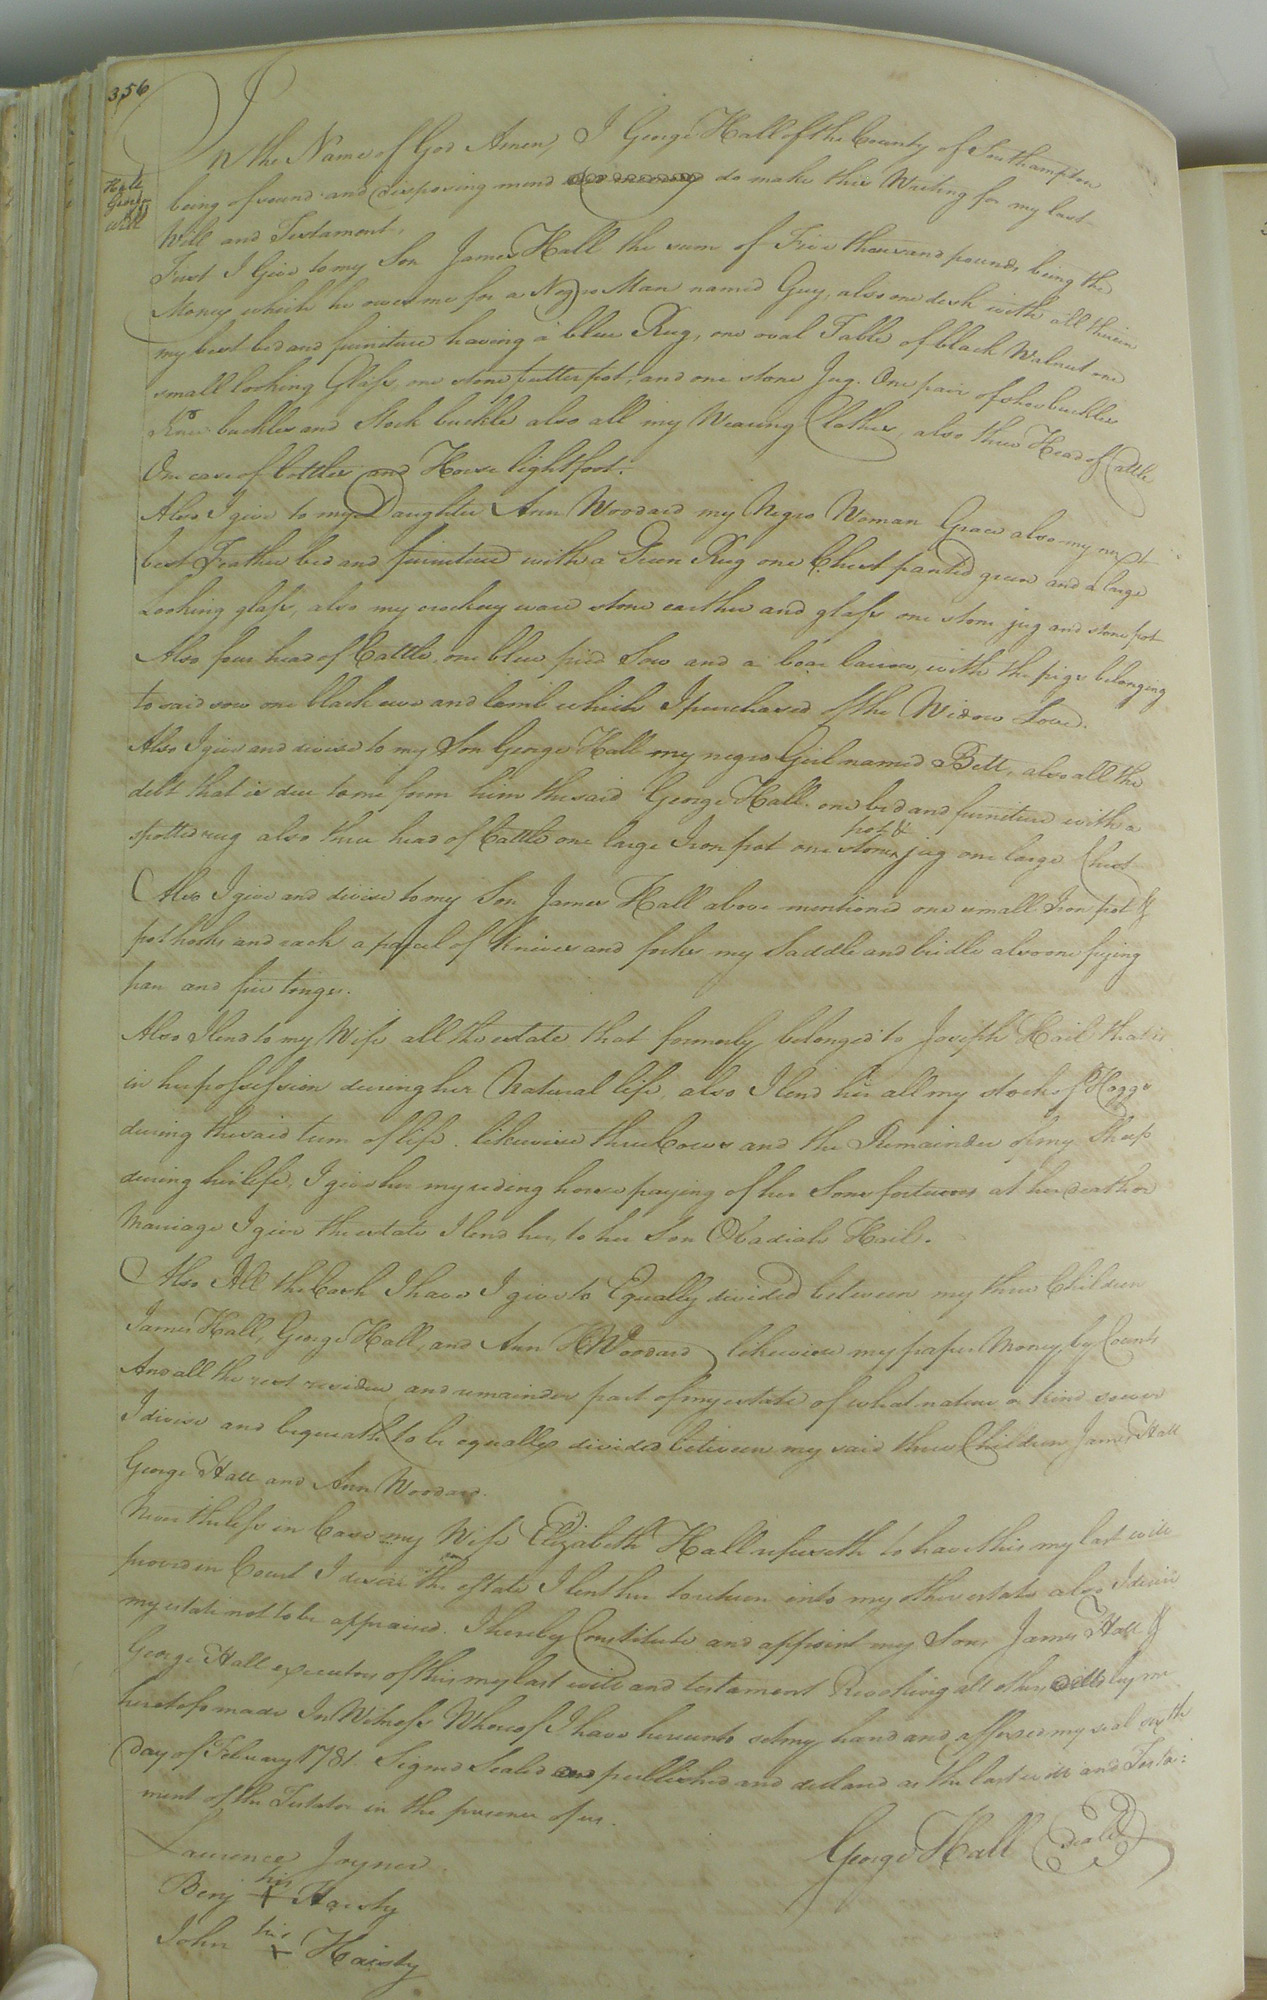 356
Halls
George
Will
In the Name of God Amen, I George Hall of the County of Southampton
being of sound and disposing mind do make this Writing for my last
Will and Testament.
First I Give to my Son James Hall the sum of Five thousand pounds being the
Money which he owes me for a Negro Man named Guy, also one desk with all therein
my best bed and furniture having a blue Rug, one oval Table of black Walnut one
small looking Glass, one stone butter pot, and one stone Jug. One pair of shoe buckles
Knee buckles and Stock buckle also all my Wearing Clothes, also three Head of Cattle
One case of bottles and Horse lightfoot.
Also I give to my Daughter Ann Woodard my Negro Woman Grace also my next
best Feather bed and furniture with a Green Rug one Chest painted green and a large
Looking glass, also my crockery ware stone earthen and glass one stone jug and stone pot
Also four head of Cattle, one blue pied Sow and a boar barrow, with the pigs belonging
to said sow one black ewe and lamb which I purchased of the Widow Love.
Also I give and devise to my Son George Hall my negro Girl named Bett, also all the
debt that is due to me from him the said George Hall. one bed and furniture with a
spotted rug also three head of Cattle one large Iron pot one stone pot & jug one large Chest
Also I give and devise to my Son James Hall above mentioned one small Iron pot &
pothooks and rack a parcel of Knives and forks my Saddle and bridle also one frying
pan and fire tongs.
Also I lend to my Wife all the estate that formerly belonged to Joseph Hail that is
in her possession during her Natural life, also I lend her all my stock of Hoggs
during the said term of life. likewise three Cows and the Remainder of my Sheep
during her life, I give her my riding horse paying of her Sons fortunes at her death or
Marriage I give the estate I lend her, to her Son Obadiah Hail.
Also All the Cash I have I give to Equally divided between my three Children
James Hall, George Hall, and Ann Woodard likewise my paper Money by Counts
And all the rest residue and remainder part of my estate of what nature or kind soever
I divise and bequeath to be equally divided between my said three Children James Hall
George Hall and Ann Woodard.
Nevertheless in Case my Wife Elizabeth Hall refuseth to have this my last will
proved in Court I desire the estate I lent her to return into my other estate also I desire
my estate not to be appraised. I hereby Constitute and appoint my Sons James Hall &
George Hall executors of this my last will and testament Revoking all other wills by me
heretofo made In Witness Whereof I have hereunto set my hand and affixed my seal sixth
day of February 1781. Signed Sealed and published and declared as the last will and Testa:
ment of the Testator in the presence of us.
George Hall (Seal)
Laurence Joyner.
Benj his X Haisty
John his X Haisty